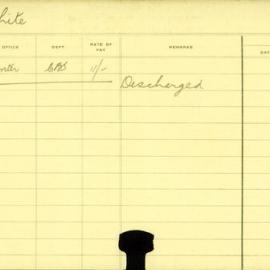 hite
OFFICE DEPT. RATE OF PAY REMARKS DA
nter 11/-
Discharged